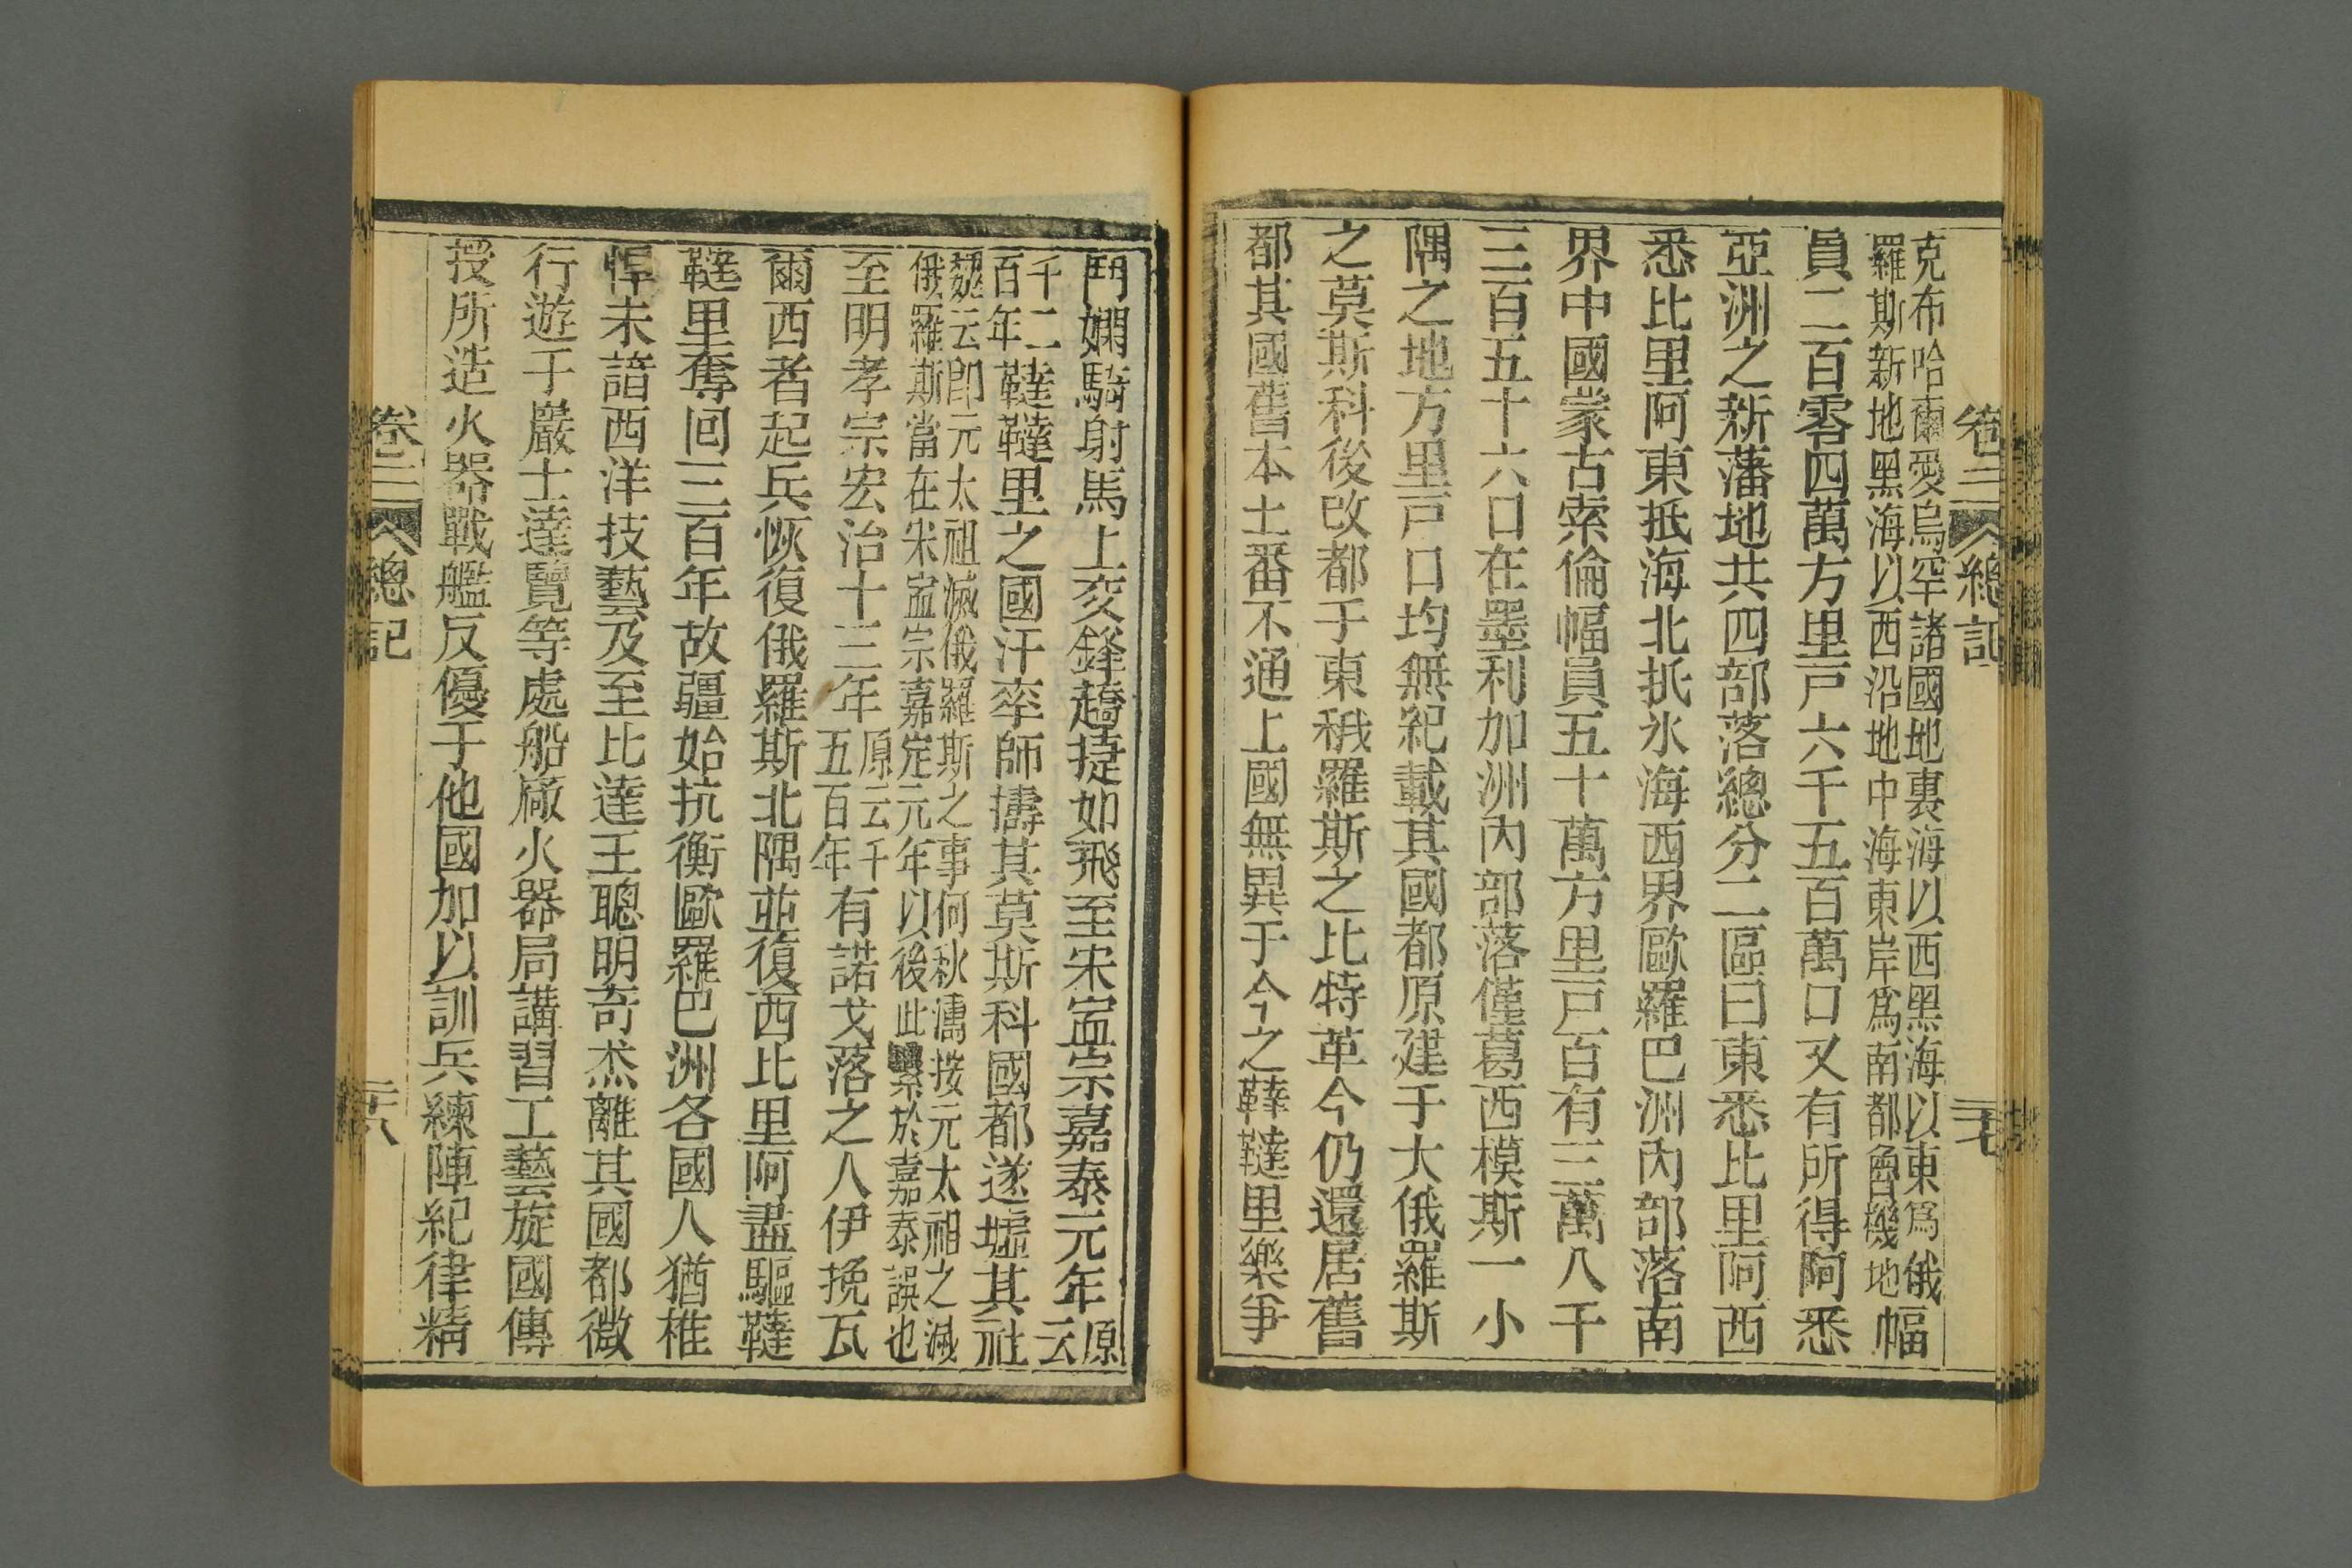 卷三 總記 二十七
克布哈爾愛烏罕諸國地裏海以西黑海以東爲俄
羅斯新地黑海以西沿地中海東岸爲南都魯機地幅
員二百零四萬方里戸六千五百萬口又有所得阿悉
亞洲之新藩地共四部落總分二區曰東悉比里阿西
悉比里阿東抵海北抵氷海西界歐羅巴洲內部落南
界中國蒙古索倫幅員五十萬方里戸百有三萬八千
三百五十六口在墨利加洲內部落僅葛西模斯一小
隅之地方里戸口均無紀載其國都原建于大俄羅斯
之莫斯科後改都于東峩羅斯之比特革今仍還居舊
都其國舊本土番不通上國無異于今之韃韃里樂爭
鬥嫻騎射馬上交鋒趫捷如飛至宋寍宗嘉泰元年原云
千二百年韃韃里之國汗率師擣其莫斯科國都遂墟其社
魏云卽元太祖滅俄羅斯之事何秋濤按元太祖之滅
俄羅斯當在宋寍宗嘉定元年以後此繫於嘉泰誤也
至明孝宗宏治十三年原云千五百年有諾戈落之人伊挽瓦
爾西者起兵恢復俄羅斯北隅並復西比里阿盡驅韃
韃里奪回三百年故疆始抗衡歐羅巴洲各國人猶椎
悍未諳西洋技藝及至比達王聰明奇杰離其國都微
行遊于嚴士達覽等處船廠火器局講習工藝旋國傳
授所造火器戰艦反優于他國加以訓兵練陣紀律精
卷三 總記 二十八